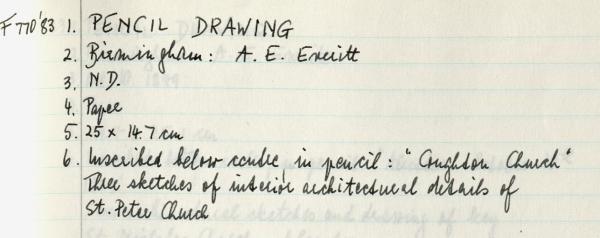 F770'83 1. PENCIL DRAWING
2. Birmingham: A. E. Everitt
3. N.D.
4. Paper
5. 25 x 14.7 cm
6. Inscribed below centre, in pencil: "Coughton Church"
Three sketches of interior architectural details of
St. Peter Church